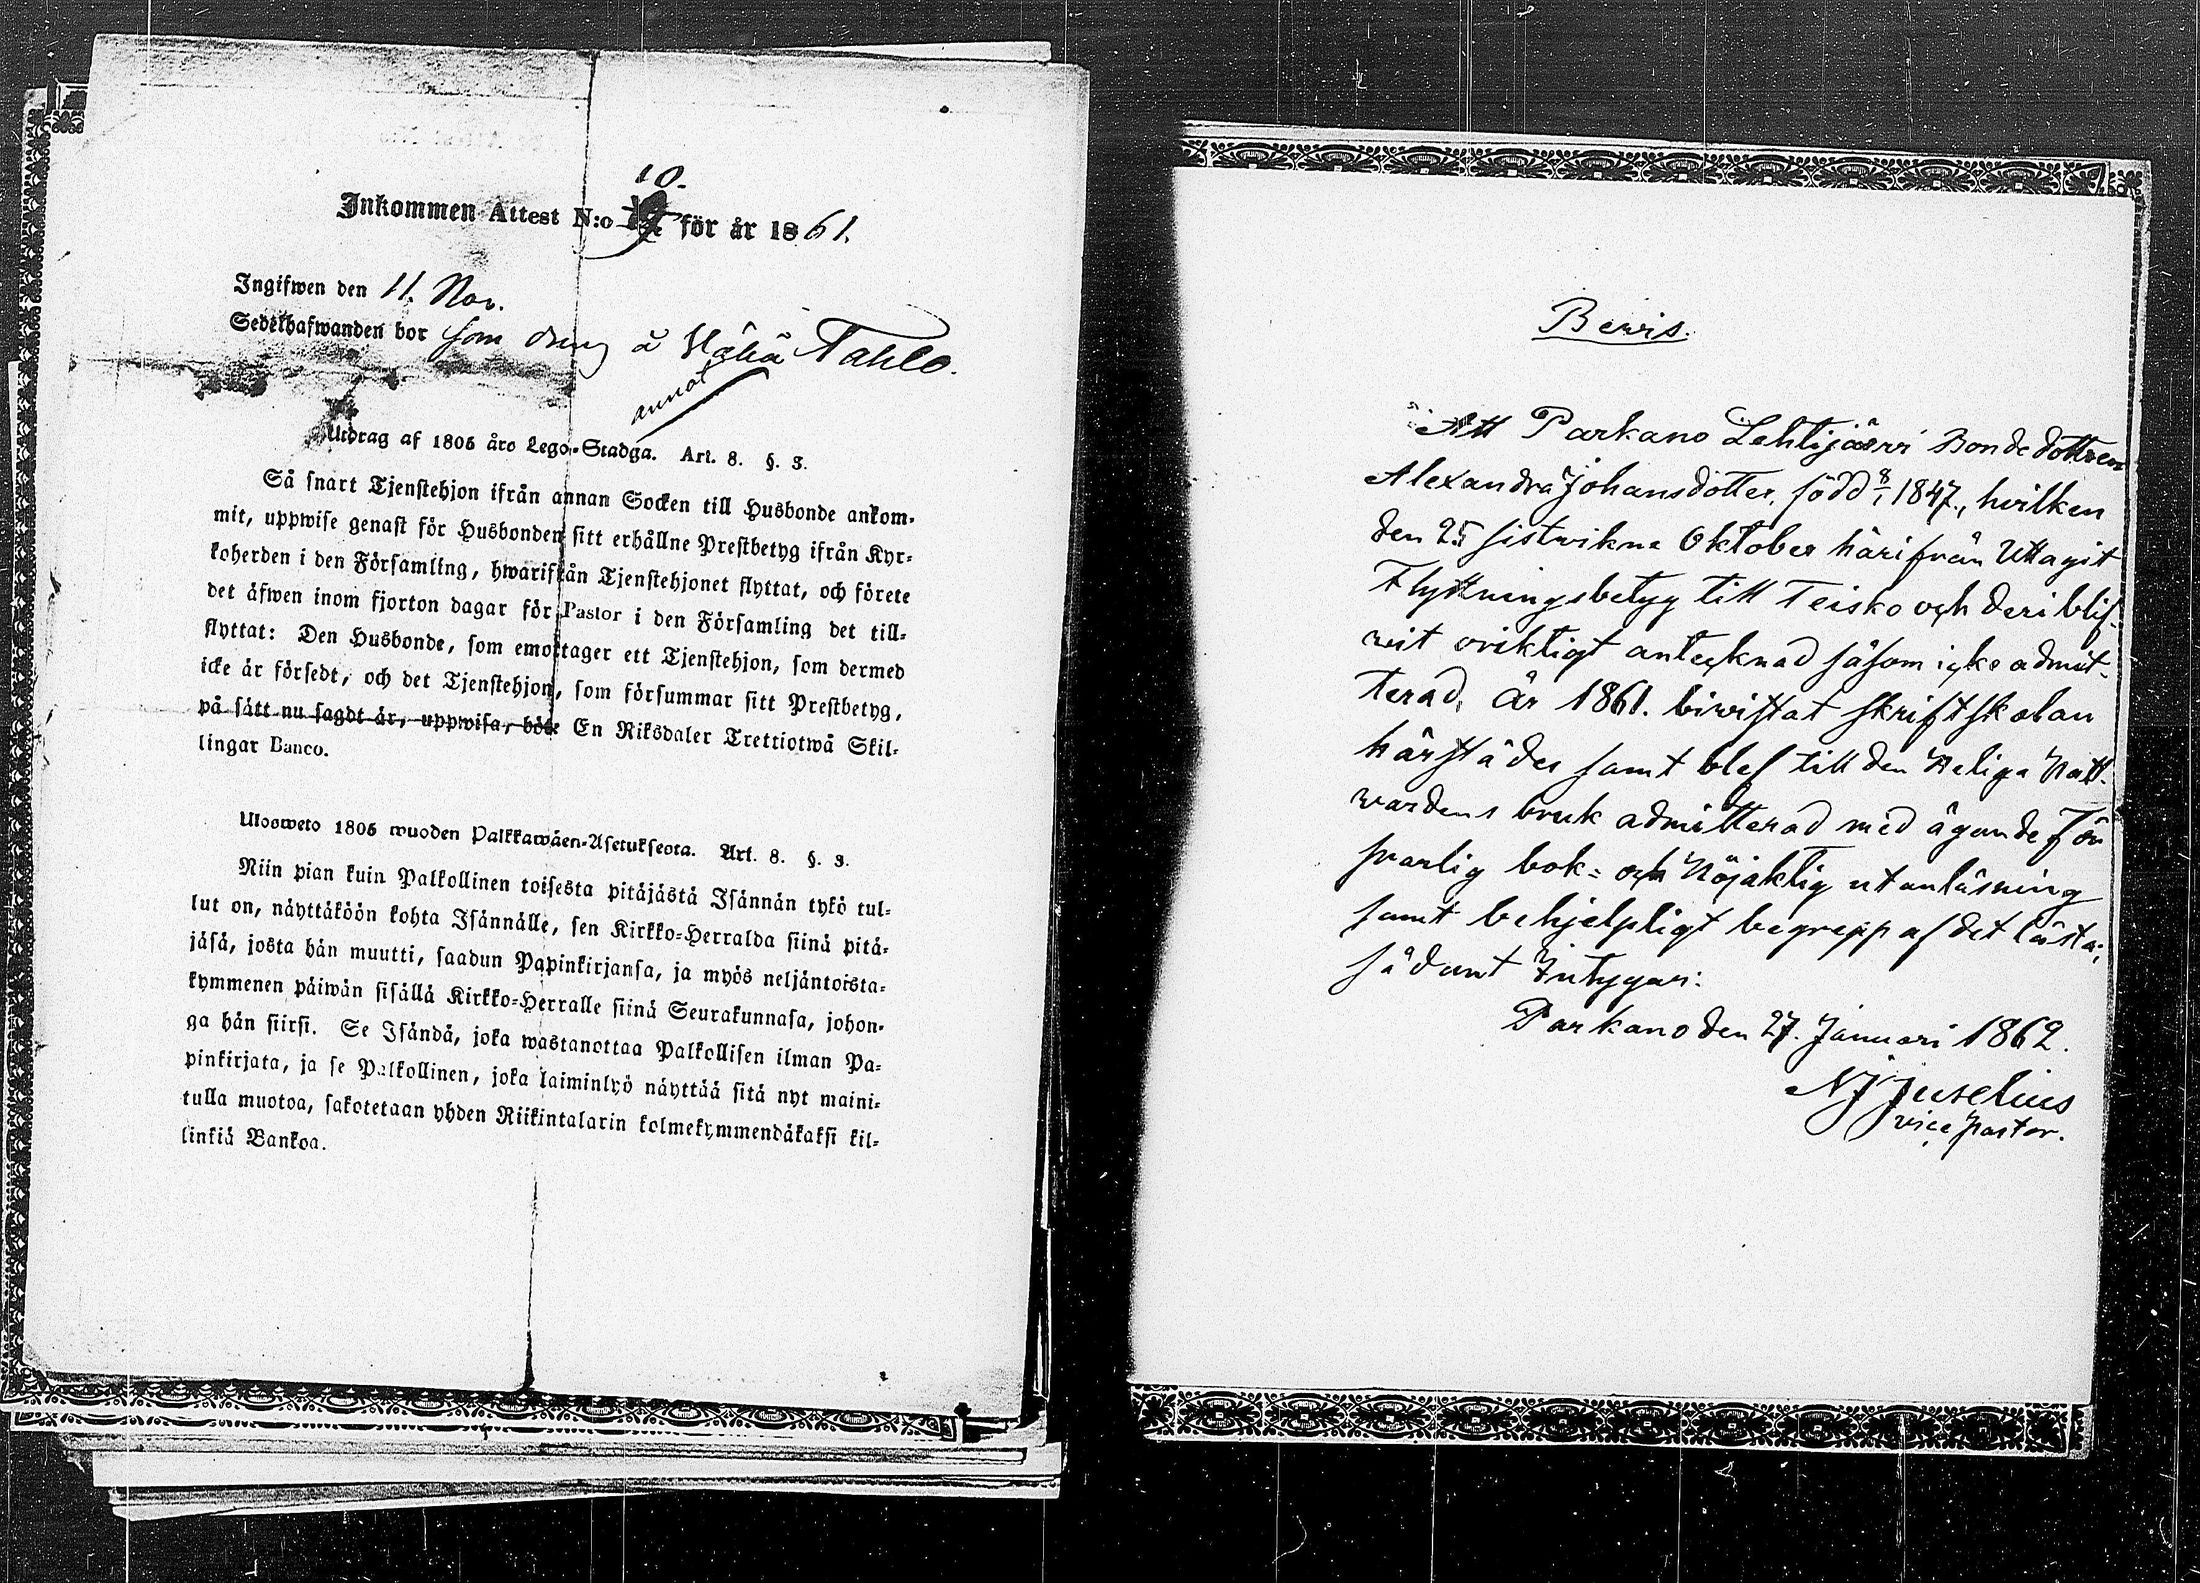 10.
Inkommen Attest N:o för år 1861.
Ingifwen den 11. Nov.
Sedelhafwanden bor som dräng å Vähä Pahlo.
annat
Utdrag af 1805 års Lego-Stadga. Art. 8. §. 3.
Så snart Tjenstehjon ifrån annan Socken till Husbonde ankom-
mit, uppwise genast för Husbonden sitt erhållne Prestbetyg ifrån Kyr-
koherden i den Församling, hwarifrån Tjenstehjonet flyttat, och förete
det äfwen inom fjorton dagar för Pastor i den Församling det till-
flyttat: Den Husbonde, som emottager ett Tjenstehjon, som dermed
icke är försedt, och det Tjenstehjon, som försummar sitt Prestbetyg,
på sätt nu sagdt är, uppwisa, böte En Riksdaler Trettiotwå Skil-
lingar Banco.
Ulosweto 1805 wuoden Palkkawäen-Asetuksesta. Art. 8. §. 3.
Niin pian kuin Palkollinen toisesta pitäjästä Isännän tykö tul-
lut on, näyttäköön kohta Isännälle, sen Kirkko-Herralda siinä pitä-
jäsä, josta hän muutti, saadun Papinkirjansa, ja myös neljäntoista-
kymmenen päiwän sisällä Kirkko-Herralle siinä Seurakunnasa, johon-
ga hän siirsi. Se Isändä, joka wastanottaa Palkollisen ilman Pa-
pinkirjata, ja se Palkollinen, joka laiminlyö näyttää sitä nyt maini-
tulla muotoa, sakotetaan yhden Riikintalarin kolmekymmendäkaksi kil-
linkiä Bankoa.
Bewis.
Att Parkano Lehtijäervi Bondedottren
Alexandra Johansdotter, född 8/1 1847., hvilken
den 25 sistvikne Oktober härifrån Uttagit
Flyttningsbetyg till Teisko och deri blif-
wit oriktigt antecknad såsom icke admit-
terad, år 1861. biwistat skriftskolan
härstädes samt blef till den Heliga Natt-
wardens bruk admitterad med ägande För-
svarlig bok- och Nöjaktig utanläsning
samt behjelpligt begrepp af det lästa;
sådant Intygar:
Parkano den 27. Januari 1862.
N J Juselius
vice pastor.